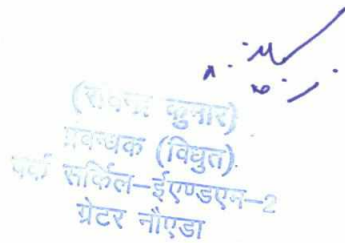 कुमार)
प्रबन्धक (विधुत)
वर्क सर्किल–ईएण्डएन–2
ग्रेटर नौएडा